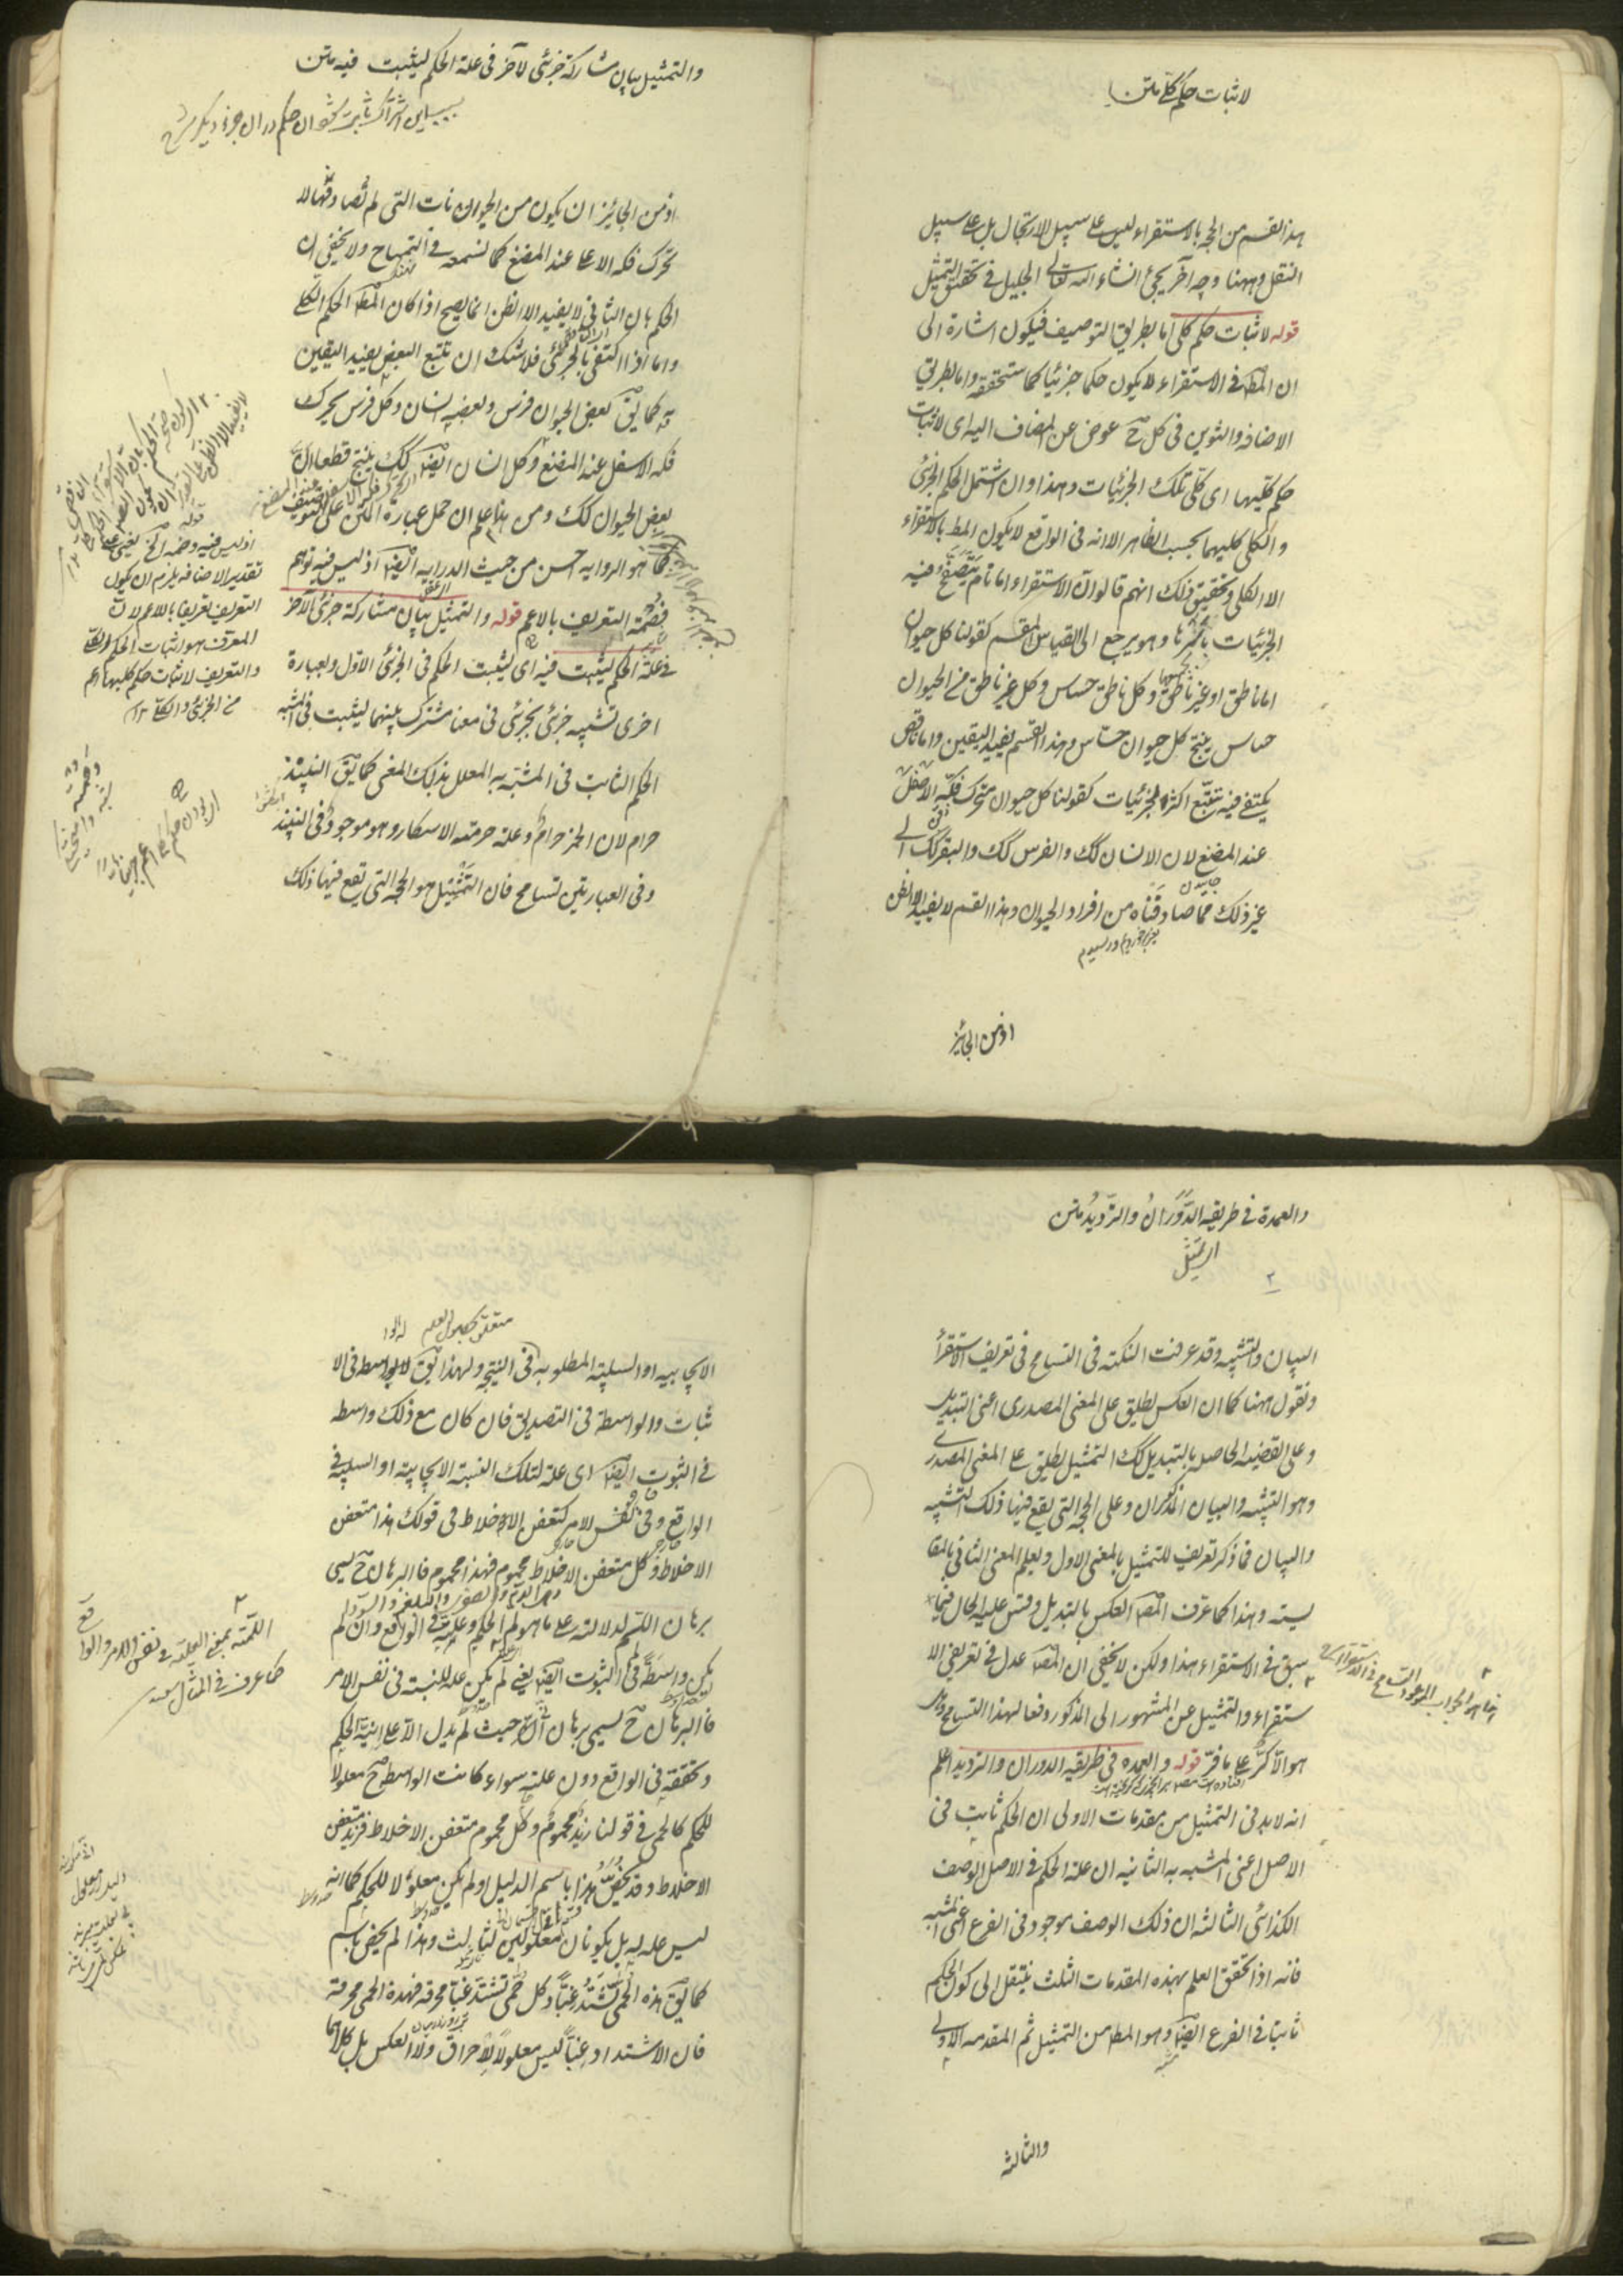 لاثبات حكم كلي متن
هذا القسم من الحجة بالاستقراء ليس على سبيل الارتجال بل على سبيل
النقل وههنا وجه آخر يجئ انشاء الله تعالى الجليل في تحقيق التمثيل
قوله لاثبات حكم كلي اما بطريق التوصيف فيكون اشارة الى
ان المط في الاستقراء لا يكون حكما جزئيا كما ستحققه واما بطريق
الاضافة والتنوين في كل ح عوض عن المضاف اليه اى لاثبات
حكم كليها اى كلي تلك الجزئيات وهذا وان اشتمل الحكم الجزئى
والكلي كليهما بحسب الظاهر الا انه في الواقع لا يكون المط بالاستقراء
الا الكلي وتحقيق ذلك انهم قالوا ان الاستقراء اما تام يتصفح فيه
الجزئيات باسرها وهو يرجع الى القياس المقسم كقولنا كل حيوان
اما ناطق او غير ناطق وكل ناطق حساس وكل غير ناطق من الحيوان
حساس ينتج كل حيوان حساس وهذا القسم يفيد اليقين واما ناقص
يكتفى فيه بتتبع اكثر الجزئيات كقولنا كل حيوان يتحرك فكه الاسفل
عند المضغ لان الانسان كك والفرس كك والبقر كك الى
غير ذلك مما صادفناه من افراد الحيوان وهذا القسم لا يفيد الا الظن
اذ من الجائز
والتمثيل بيان مشاركة جزئى لآخر في علة الحكم ليثبت فيه متن
بسبب اين اشتراك ثابت شود ان حكم در ان جزء ديكر
اذ من الجائز ان يكون من الحيوانات التى لم نصادفها لا
تحرك فكه الاعلى عند المضغ كما نسمعه في التمساح ولا يخفى ان
الحكم بان الثاني لا يفيد الا الظن انما يصح اذا كان المط الحكم الكلي
واما اذا اكتفى بالجزئى فلا شك ان تتبع البعض يفيد اليقين
به كما يق بعض الحيوان فرس وبعضه انسان وكل فرس يحرك
فكه الاسفل عند المضغ وكل انسان ايضا كك ينتج قطعا ان
بعض الحيوان كك ومن هذا علم ان حمل عبارة المتن على التوصيف
كما هو الرواية احسن من حيث الدراية ايضا اذ ليس فيه توهم
التعريف بالاعم قوله والتمثيل بيان مشاركة جزئى لآخر
في علة الحكم ليثبت فيه اى ليثبت الحكم في الجزئى الاول وبعبارة
اخرى تشبيه جزئى بجزئى في معنى مشترك بينهما ليثبت في المشبه
الحكم الثابت في المشبه به المعلل بذلك المعنى كما يق النبيذ
حرام لان الخمر حرام وعلة حرمته الاسكار وهو موجود في النبيذ
وفى العبارتين تسامح فان التمثيل هو الحجة التى يقع فيها ذلك
اذ ليس فيه وضمه الخ يعنى على
تقدير الاضافة يلزم ان يكون
التعريف تعريفا بالاعم لان
المعرف هو اثبات الحكم الكلي
والتعريف لاثبات حكم كليها اعم
من الجزئى والكلي ١٢
والعمدة في طريقه الدوران والترديد متن
اى التمثيل
البيان والتشبيه وقد عرفت النكتة في التسامح في تعريف الاستقراء
ونقول ههنا كما ان العكس يطلق على المعنى المصدرى اعنى التبديل
وعلى القضية الحاصلة بالتبديل كك التمثيل يطلق على المعنى المصدرى
وهو التشبيه والبيان المذكوران وعلى الحجة التى يقع فيها ذلك التشبيه
والبيان فما ذكر تعريف للتمثيل بالمعنى الاول ويعلم المعنى الثاني بالمقا
يسته وهذا كما عرف المص العكس بالتبديل وقس عليه الحال فيما
سبق في الاستقراء هذا ولكن لا يخفى ان المص عدل في تعريفى الا
ستقراء والتمثيل عن المشهور الى المذكور دفعا لهذا التسامح وهل
هو الا كر على ما فر قوله والعمدة في طريقه الدوران والترديد اعلم
انه لا بد في التمثيل من مقدمات الاولى ان الحكم ثابت في
الاصل اعنى المشبه به الثانية ان علة الحكم في الاصل الوصف
الكذائى الثالثة ان ذلك الوصف موجود في الفرع اعنى المشبه
فانه اذا تحقق العلم بهذه المقدمات الثلث ينتقل الى كون الحكم
ثابتا في الفرع ايضا وهو المط من التمثيل ثم المقدمة الاولى
والثالثة
متعلق بحصول العلم
الايجابية او السلبية المطلوبة في النتيجة ولهذا يق له الواسطة فى الا
ثبات والواسطة في التصديق فان كان مع ذلك واسطة
في الثبوت ايضا اى علة لتلك النسبة الايجابية او السلبية في
الواقع وفى نفس الامر كتعفن الاخلاط فى قولك هذا متعفن
الاخلاط وكل متعفن الاخلاط محموم فهذا محموم فالبرهان ح يسمى
برهان اللم لدلالته على ما هو لم الحكم وعلته في الواقع وان لم
يكن واسطة في الثبوت ايضا يعنى لم يكن علة للنسبة في نفس الامر
فالبرهان ح يسمى برهان ان حيث لم يدل الا على انية الحكم
وتحققه في الواقع دون علته سواء كانت الواسطة ح معلولا
للحكم كالحمى في قولنا زيد محموم وكل محموم متعفن الاخلاط فزيد متعفن
الاخلاط وقد يخص هذا باسم الدليل او لم يكن معلولا للحكم كما انه
ليس علة له بل يكونان معلولين لثالث وهذا لم يخص باسم
كما يق هذه الحمى تشتد غبا وكل حمى تشتد غبا محرقة فهذه الحمى محرقة
فان الاشتداد غبا ليس معلولا للاحراق ولا العكس بل كلاهما
اللمية بمعنى العلية في نفس الامر والوا
قع
كما عرف في المثال